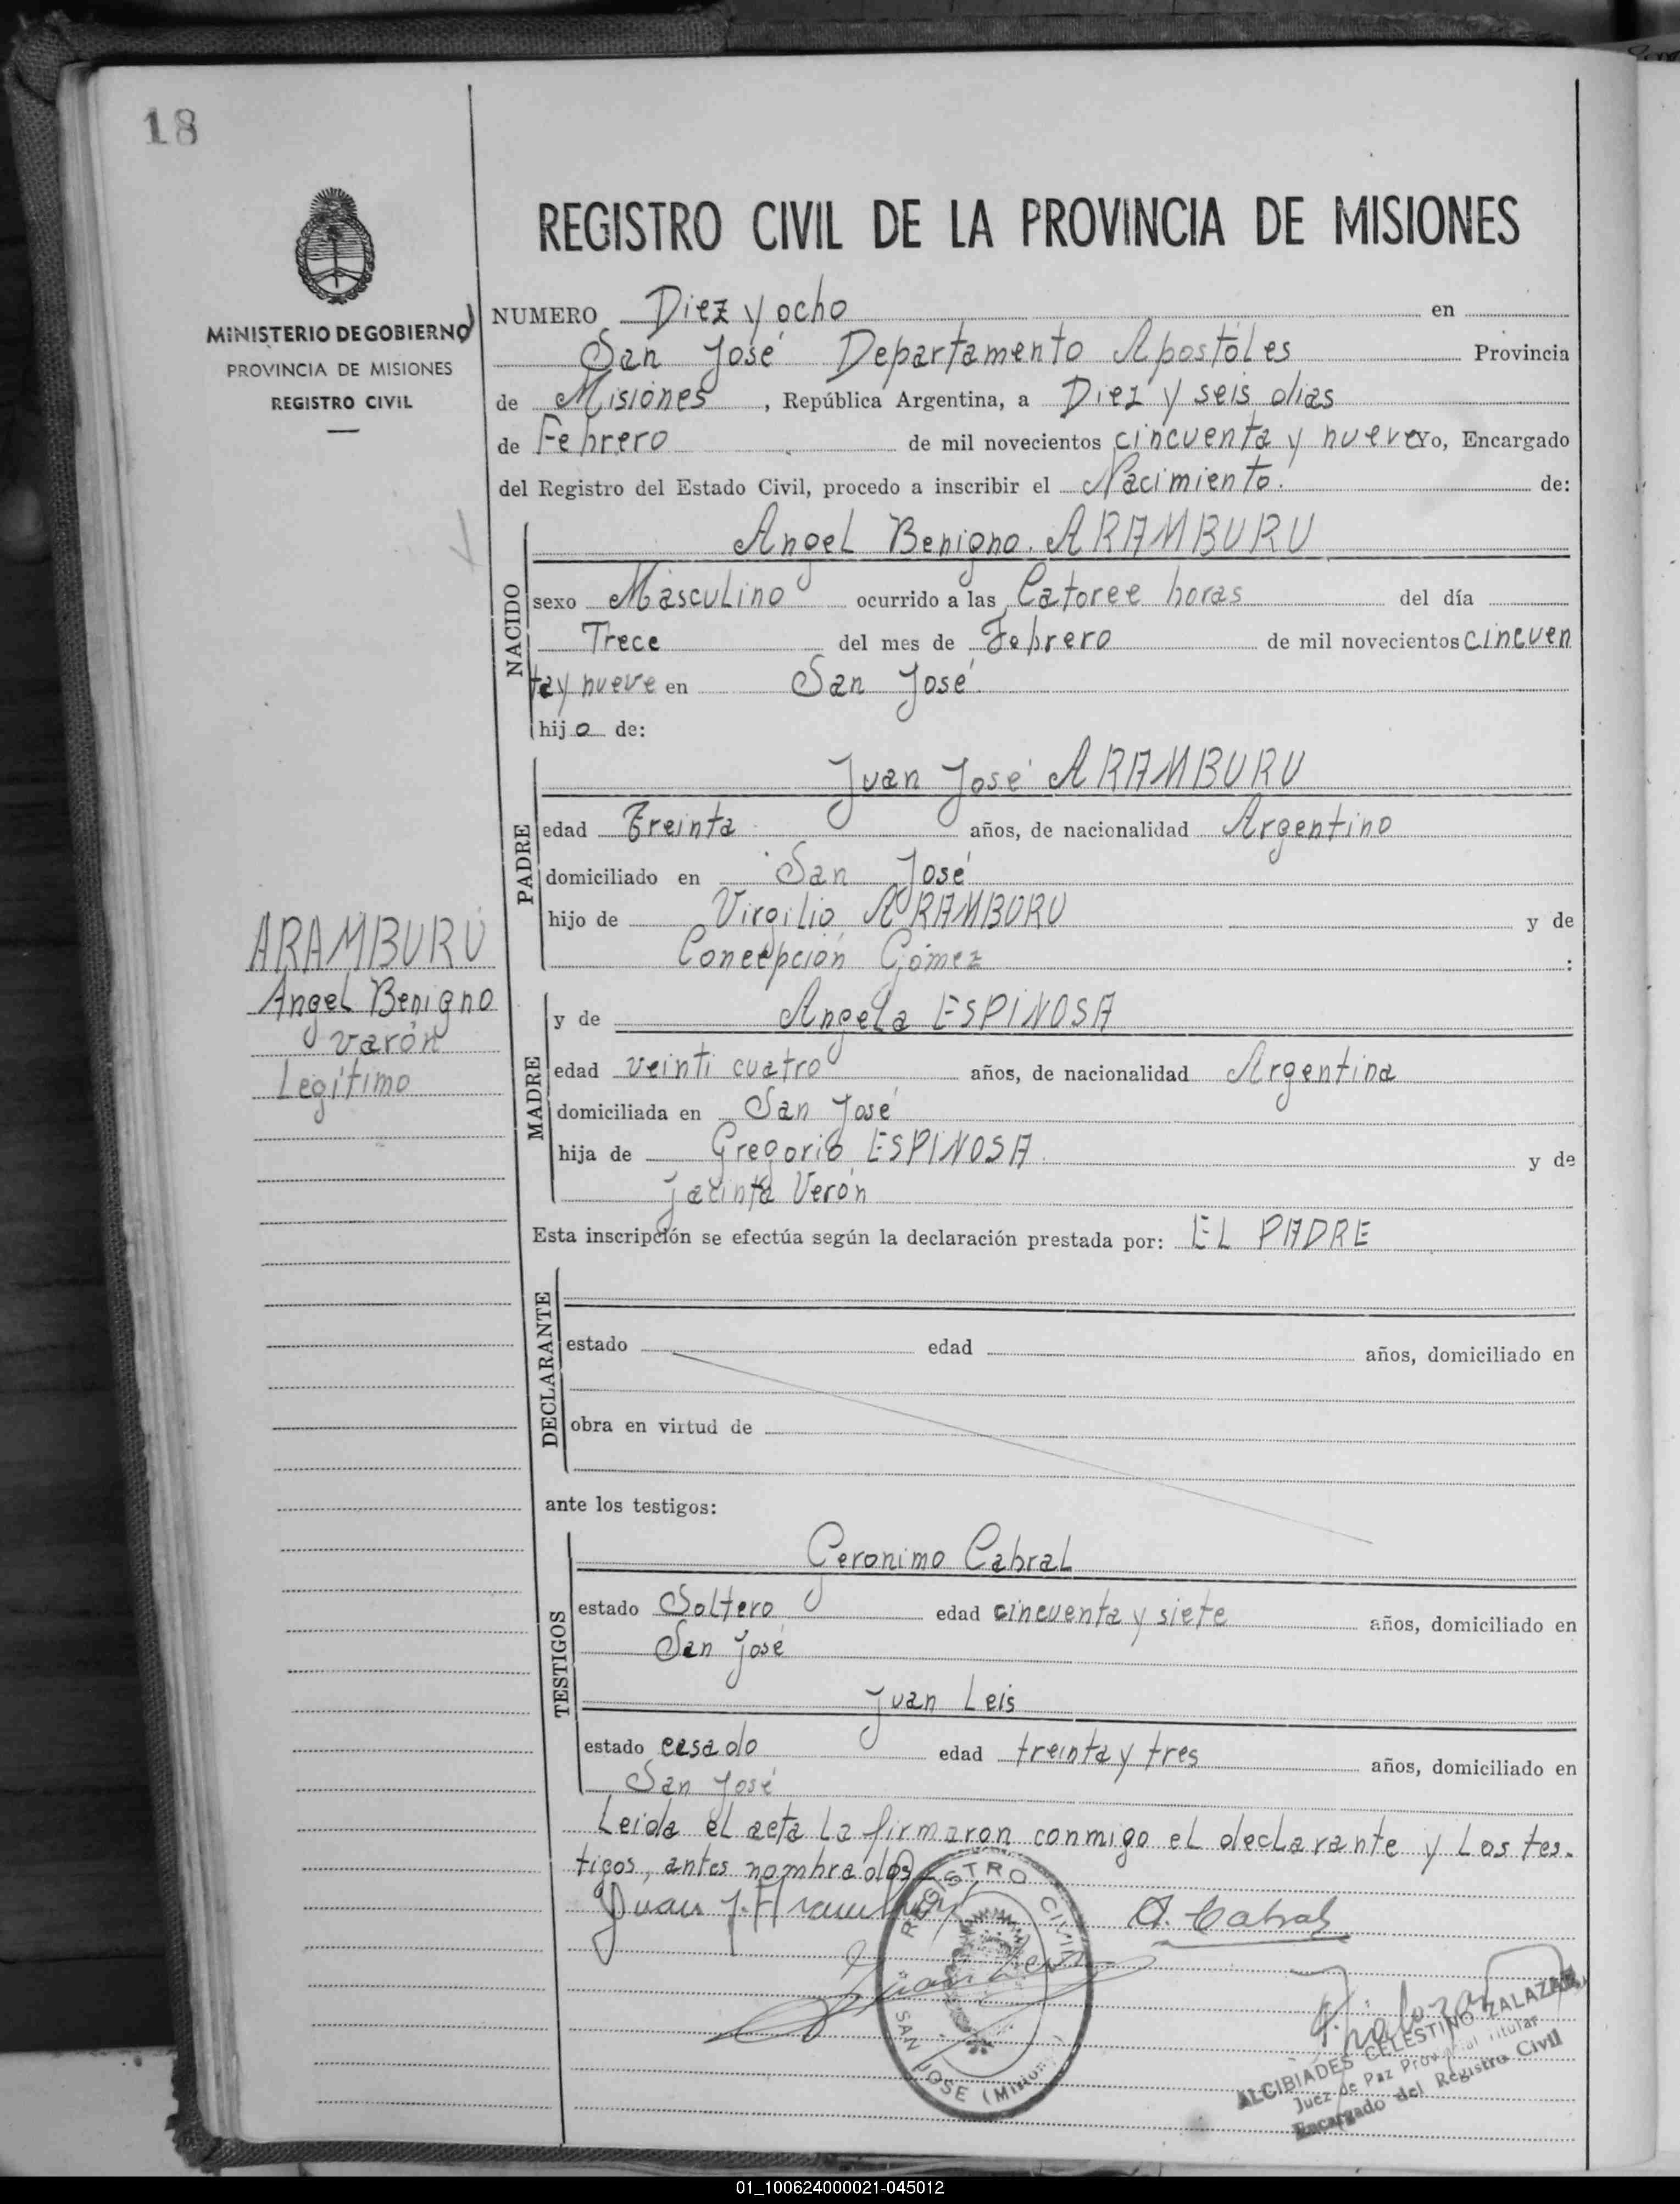 18
REGISTRO CIVIL DE LA PROVINCIA DE MISIONES
MINISTERIO DE GOBIERNO
PROVINCIA DE MISIONES
REGISTRO CIVIL
NUMERO Diez y ocho en
San José Departamento Apostóles Provincia
de Misiones, República Argentina, a Diez y seis dias
de Febrero de mil novecientos cincuenta y nueve Yo, Encargado
del Registro del Estado Civil, procedo a inscribir el Nacimiento. de:
NACIDO
Angel Benigno. ARAMBURU
sexo Masculino ocurrido a las Catorce horas del día
Trece del mes de Febrero de mil novecientos cincuen
ta y nueve en San José.
hijo de:
PADRE
Juan José ARAMBURU
edad Treinta años, de nacionalidad Argentino
domiciliado en San José
hijo de Virgilio ARAMBURU y de
Concepción Gómez :
ARAMBURU
Angel Benigno
varón
Legítimo
MADRE
y de Angela ESPINOSA
edad veinti cuatro años, de nacionalidad Argentina
domiciliada en San José
hija de Gregorio ESPINOSA y de
Jacinta Verón
Esta inscripción se efectúa según la declaración prestada por: EL PADRE
DECLARANTE
estado edad años, domiciliado en
obra en virtud de
ante los testigos:
TESTIGOS
Geronimo Cabral
estado Soltero edad cincuenta y siete años, domiciliado en
San José
Juan Leis
estado casado edad treinta y tres años, domiciliado en
San José
Leida el acta la firmaron conmigo el declarante y los tes-
tigos, antes nombrados
Juan J. Aramburu
G. Cabral
Juan Leis
REGISTRO CIVIL
SAN JOSE (Misiones)
ALCIBIADES CELESTINO ZALAZAR
Juez de Paz Provincial Titular
Encargado del Registro Civil
01_100624000021-045012